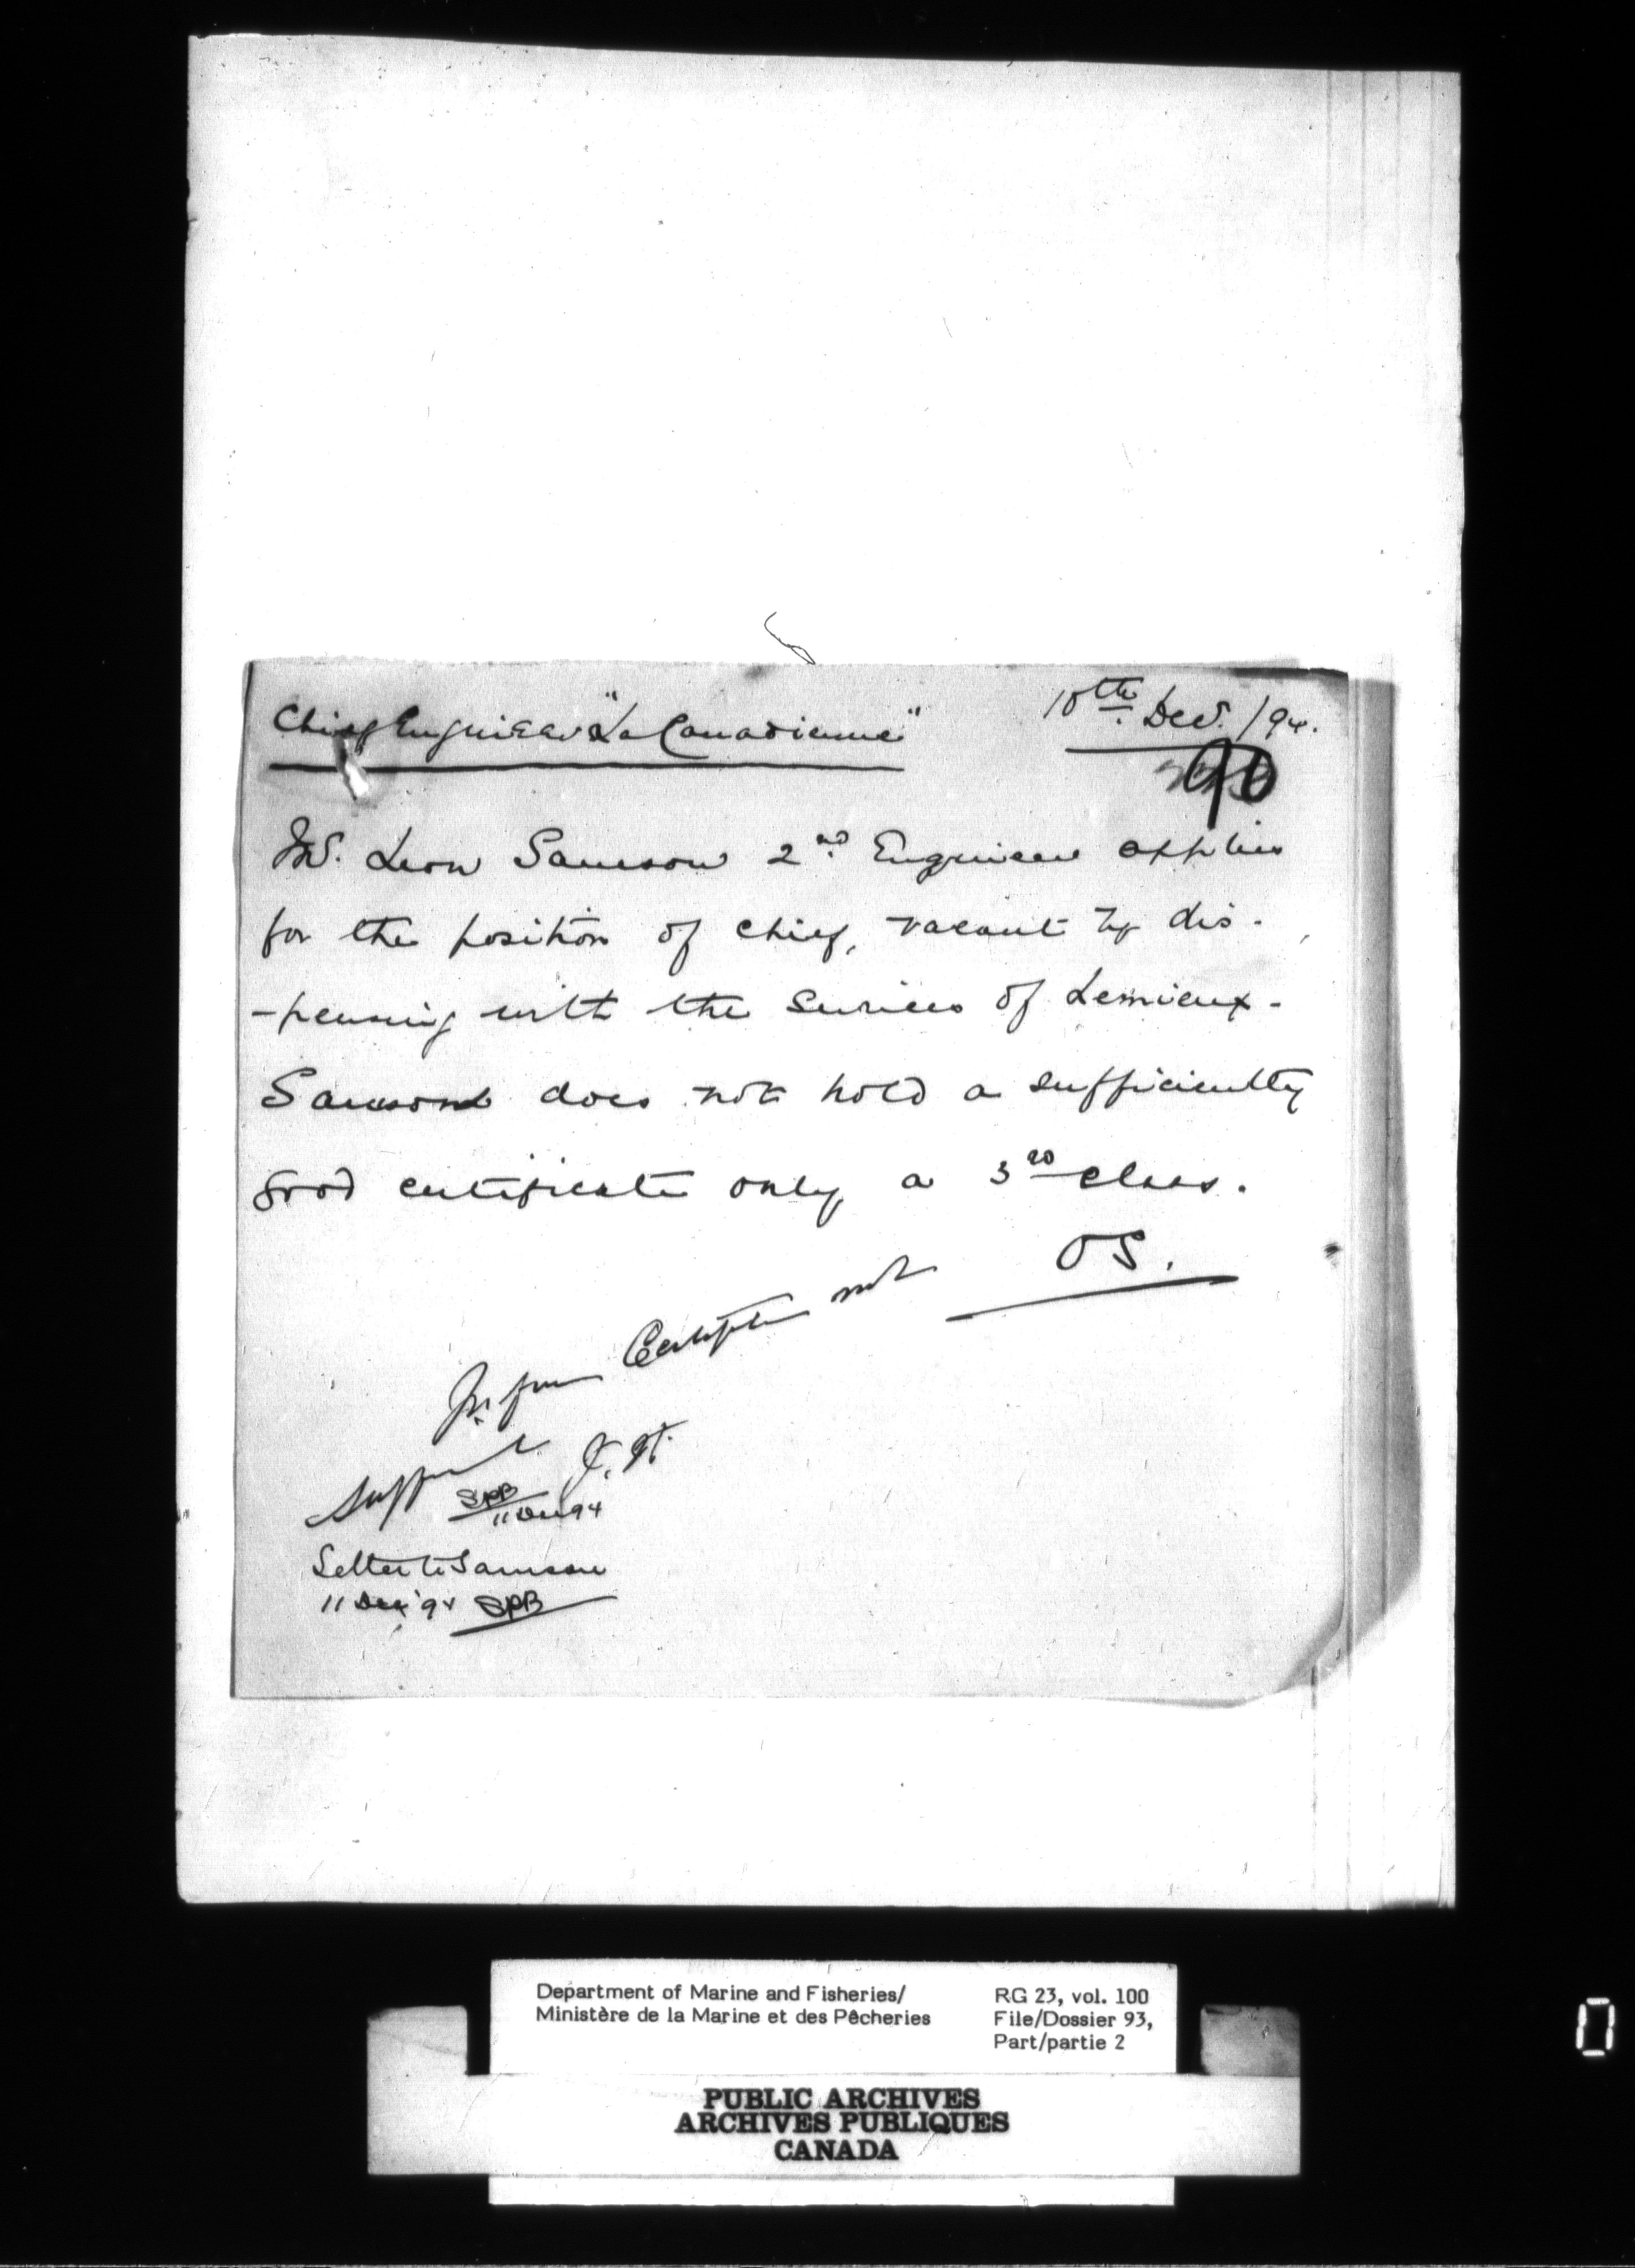 Chief Engineer "La Canadienne"
10th. Decr. /94.
90
Mr. Leon Samson 2nd. Engineer applies
for the position of chief, vacant by dis-
-pensing with the services of Lemieux.
Samson does not hold a sufficiently
good certificate only a 3rd class.
OS.
Inform Certificate not
sufficient J.H.
SPB
11 Dec 94
Letter to Samson
11 Dec '94 SPB
Department of Marine and Fisheries/
Ministère de la Marine et des Pêcheries
RG 23, vol. 100
File/Dossier 93,
Part/partie 2
PUBLIC ARCHIVES
ARCHIVES PUBLIQUES
CANADA
0